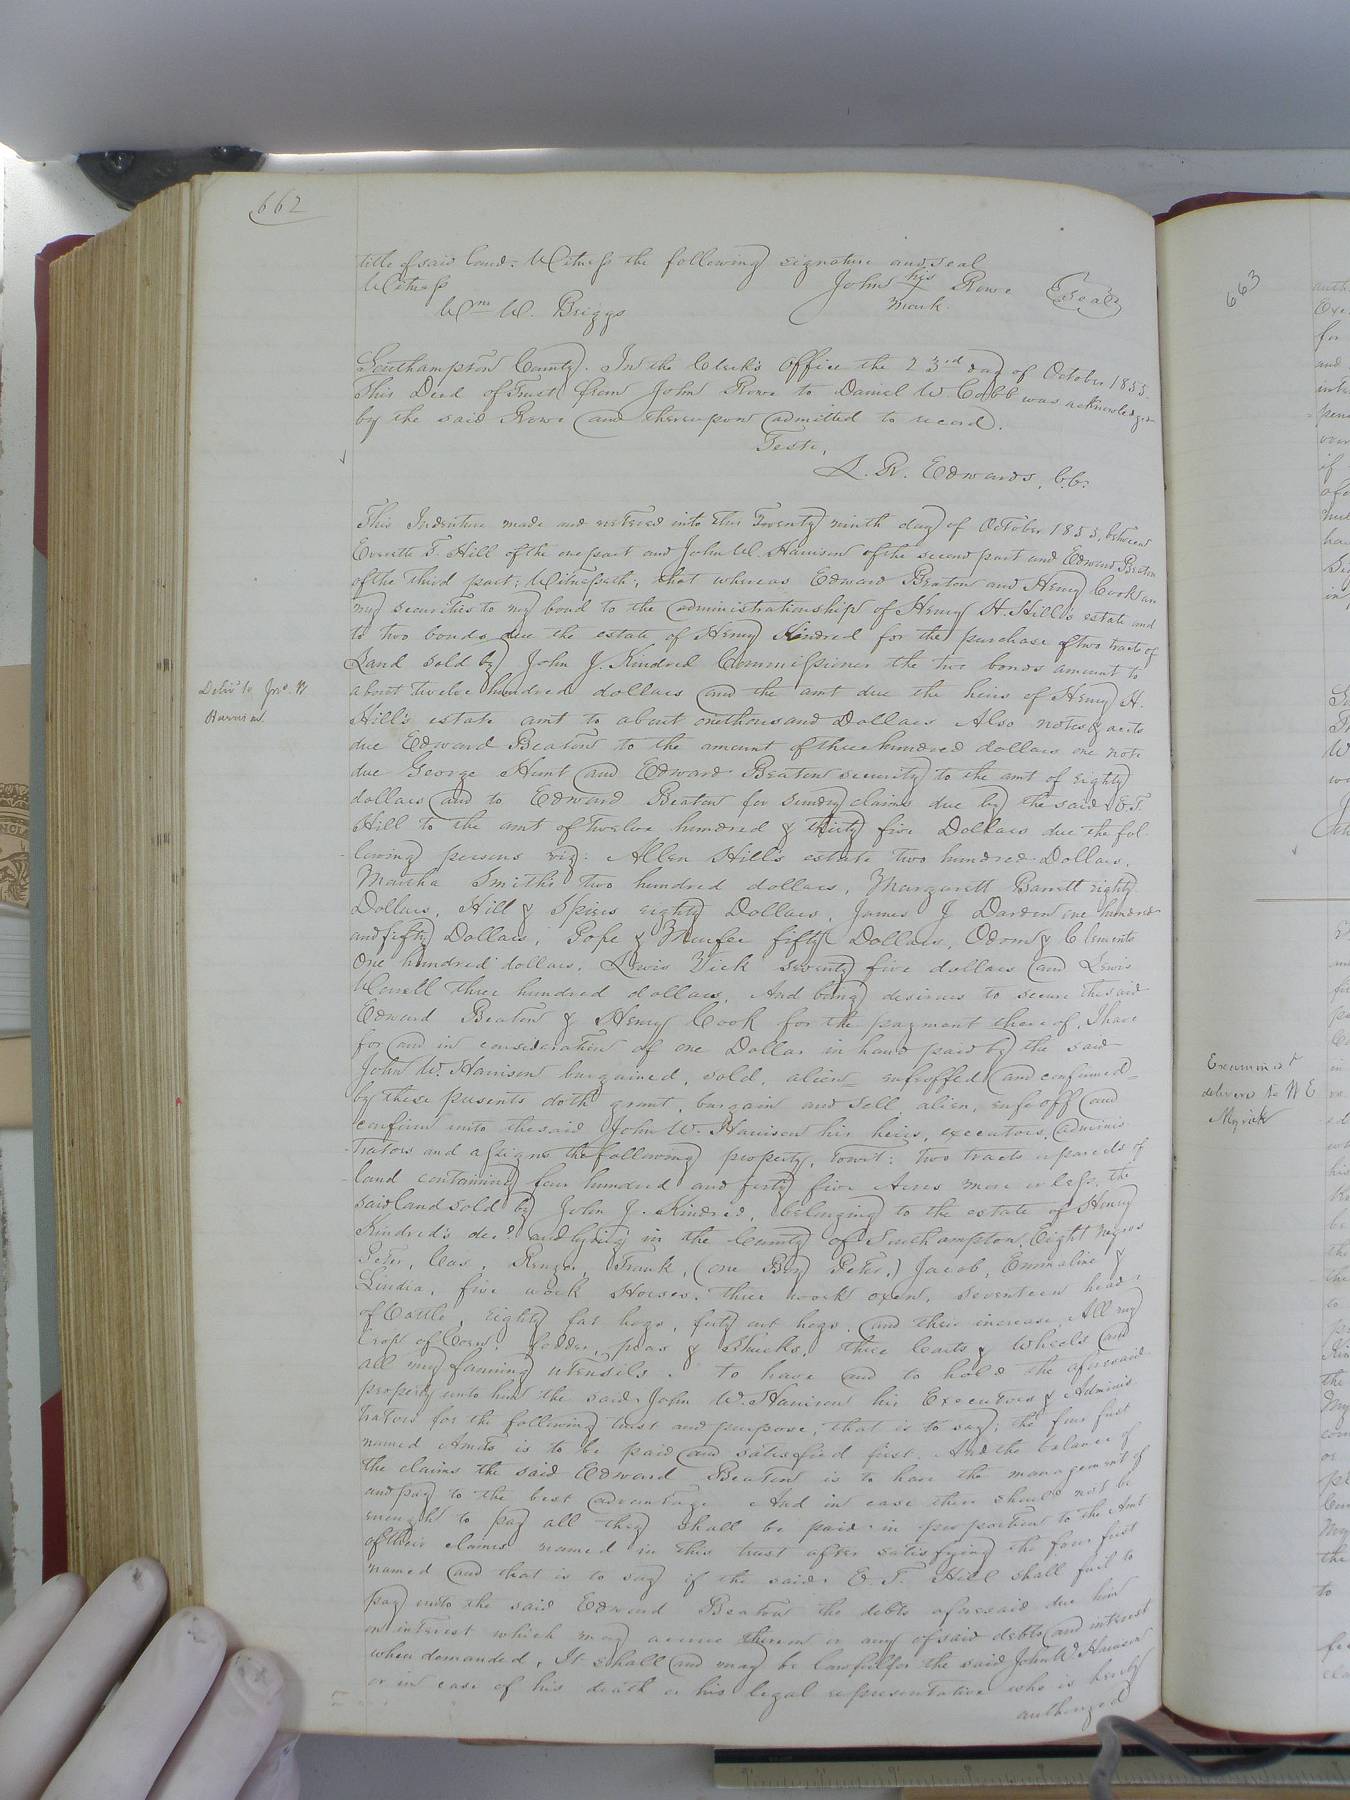 662
title of said land. Witness the following signature and seal
Witness John his Rowe Seal
Wm W. Briggs X mark
Southampton County. In the Clerk's Office the 23rd day of October 1855.
This Deed of Trust from John Rowe to Daniel W. Cobb was acknowledged
by the said Rowe and thereupon admitted to record.
Teste,
L. R. Edwards, C.C.
This Indenture made and entered into this Twenty ninth day of October 1855, between
Everette T. Hill of the one part and John W. Harrison of the second part and Edward Beaton
of the third part; Witnesseth, that whereas Edward Beaton and Henry Cook are
my securities to my bond to the administrationship of Henry H. Hill's estate and
to two bonds due the estate of Henry Kindred for the purchase of two tracts of
Land sold by John J. Kindred Commissioner the two bonds amount to
about twelve hundred dollars and the amt due the heirs of Henry H.
Hill's estate amt to about one thousand Dollars Also notes & accts
due Edward Beaton to the amount of three hundred dollars one note
due George Hunt and Edward Beaton security to the amt of eighty
dollars and to Edward Beaton for sundry claims due by the said E.T.
Hill to the amt of twelve hundred & thirty five Dollars due the fol-
lowing persons viz: Allen Hill's estate two hundred Dollars.
Martha Smith's two hundred dollars, Margarett Barrett eighty
Dollars, Hill & Spiers eighty Dollars, James J Darden one hundred
and fifty Dollars, Pope & Murfee fifty Dollars, Odom & Clements
One hundred dollars. Lewis Vick seventy five dollars and Lewis
Worrell three hundred dollars. And being desirous to secure the said
Edward Beaton & Henry Cook for the payment thereof, I have
for and in consideration of one Dollar in hand paid by the said
John W. Harrison bargained, sold, alien= enfeoffed and confirmed=
by these presents doth grant, bargain and sell, alien, enfeoff and
confirm unto the said John W. Harrison his heirs, executors, adminis-
trators and assigns the following property, towit: two tracts or parcels of
land containing four hundred and forty five Acres more or less, the
said land sold by John J. Kindred, belonging to the estate of Henry
Kindred's decd. and lying in the County of Southampton, Eight negros
Peter, Cas, Frank, (one Boy Peter,) Jacob, Emmaline &
Lindia, five work Horses, three work oxen, seventeen head
of Cattle, eighty fat hogs, forty out hogs, and their increase, All my
Crop of Corn, fodder, peas & Shucks, three Carts & Wheels and
all my farming utensils. To have and to hold the aforesaid
property unto him the said John W. Harrison his Executors & Adminis-
trators for the following trust and purpose, that is to say; the four first
named Amts is to be paid and satisfied first. And the balance of
the claims the said Edward Beaton is to have the management of
and pay to the best advantage And in case there should not be
enought to pay all they shall be paid in proportion to the Amt
of their claims named in this trust after satisfying the four first
named and that is to say if the said E. T. Hill shall fail to
pay unto the said Edward Beaton the debts aforesaid due him
or interest which may accrue thereon or any of said debts and interest
when demanded, It shall and may be lawful for the said John W. Harrison
or in case of his death or his legal representative who is hereby
authorized
Deliv'd to Jno. W
Harrison
663
Examined &
delivered to W E
Myrick